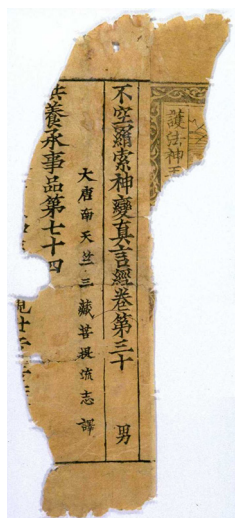 護法神王
不空羂索神變真言經卷第三十 男
大唐南天竺三藏菩提流志 譯
供養承事品第七十四